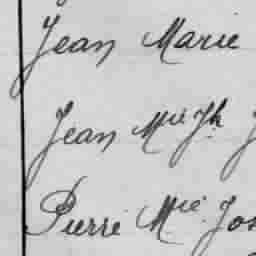 Jean Marie
Jean Mie Jh J
Pierre Mie Jos